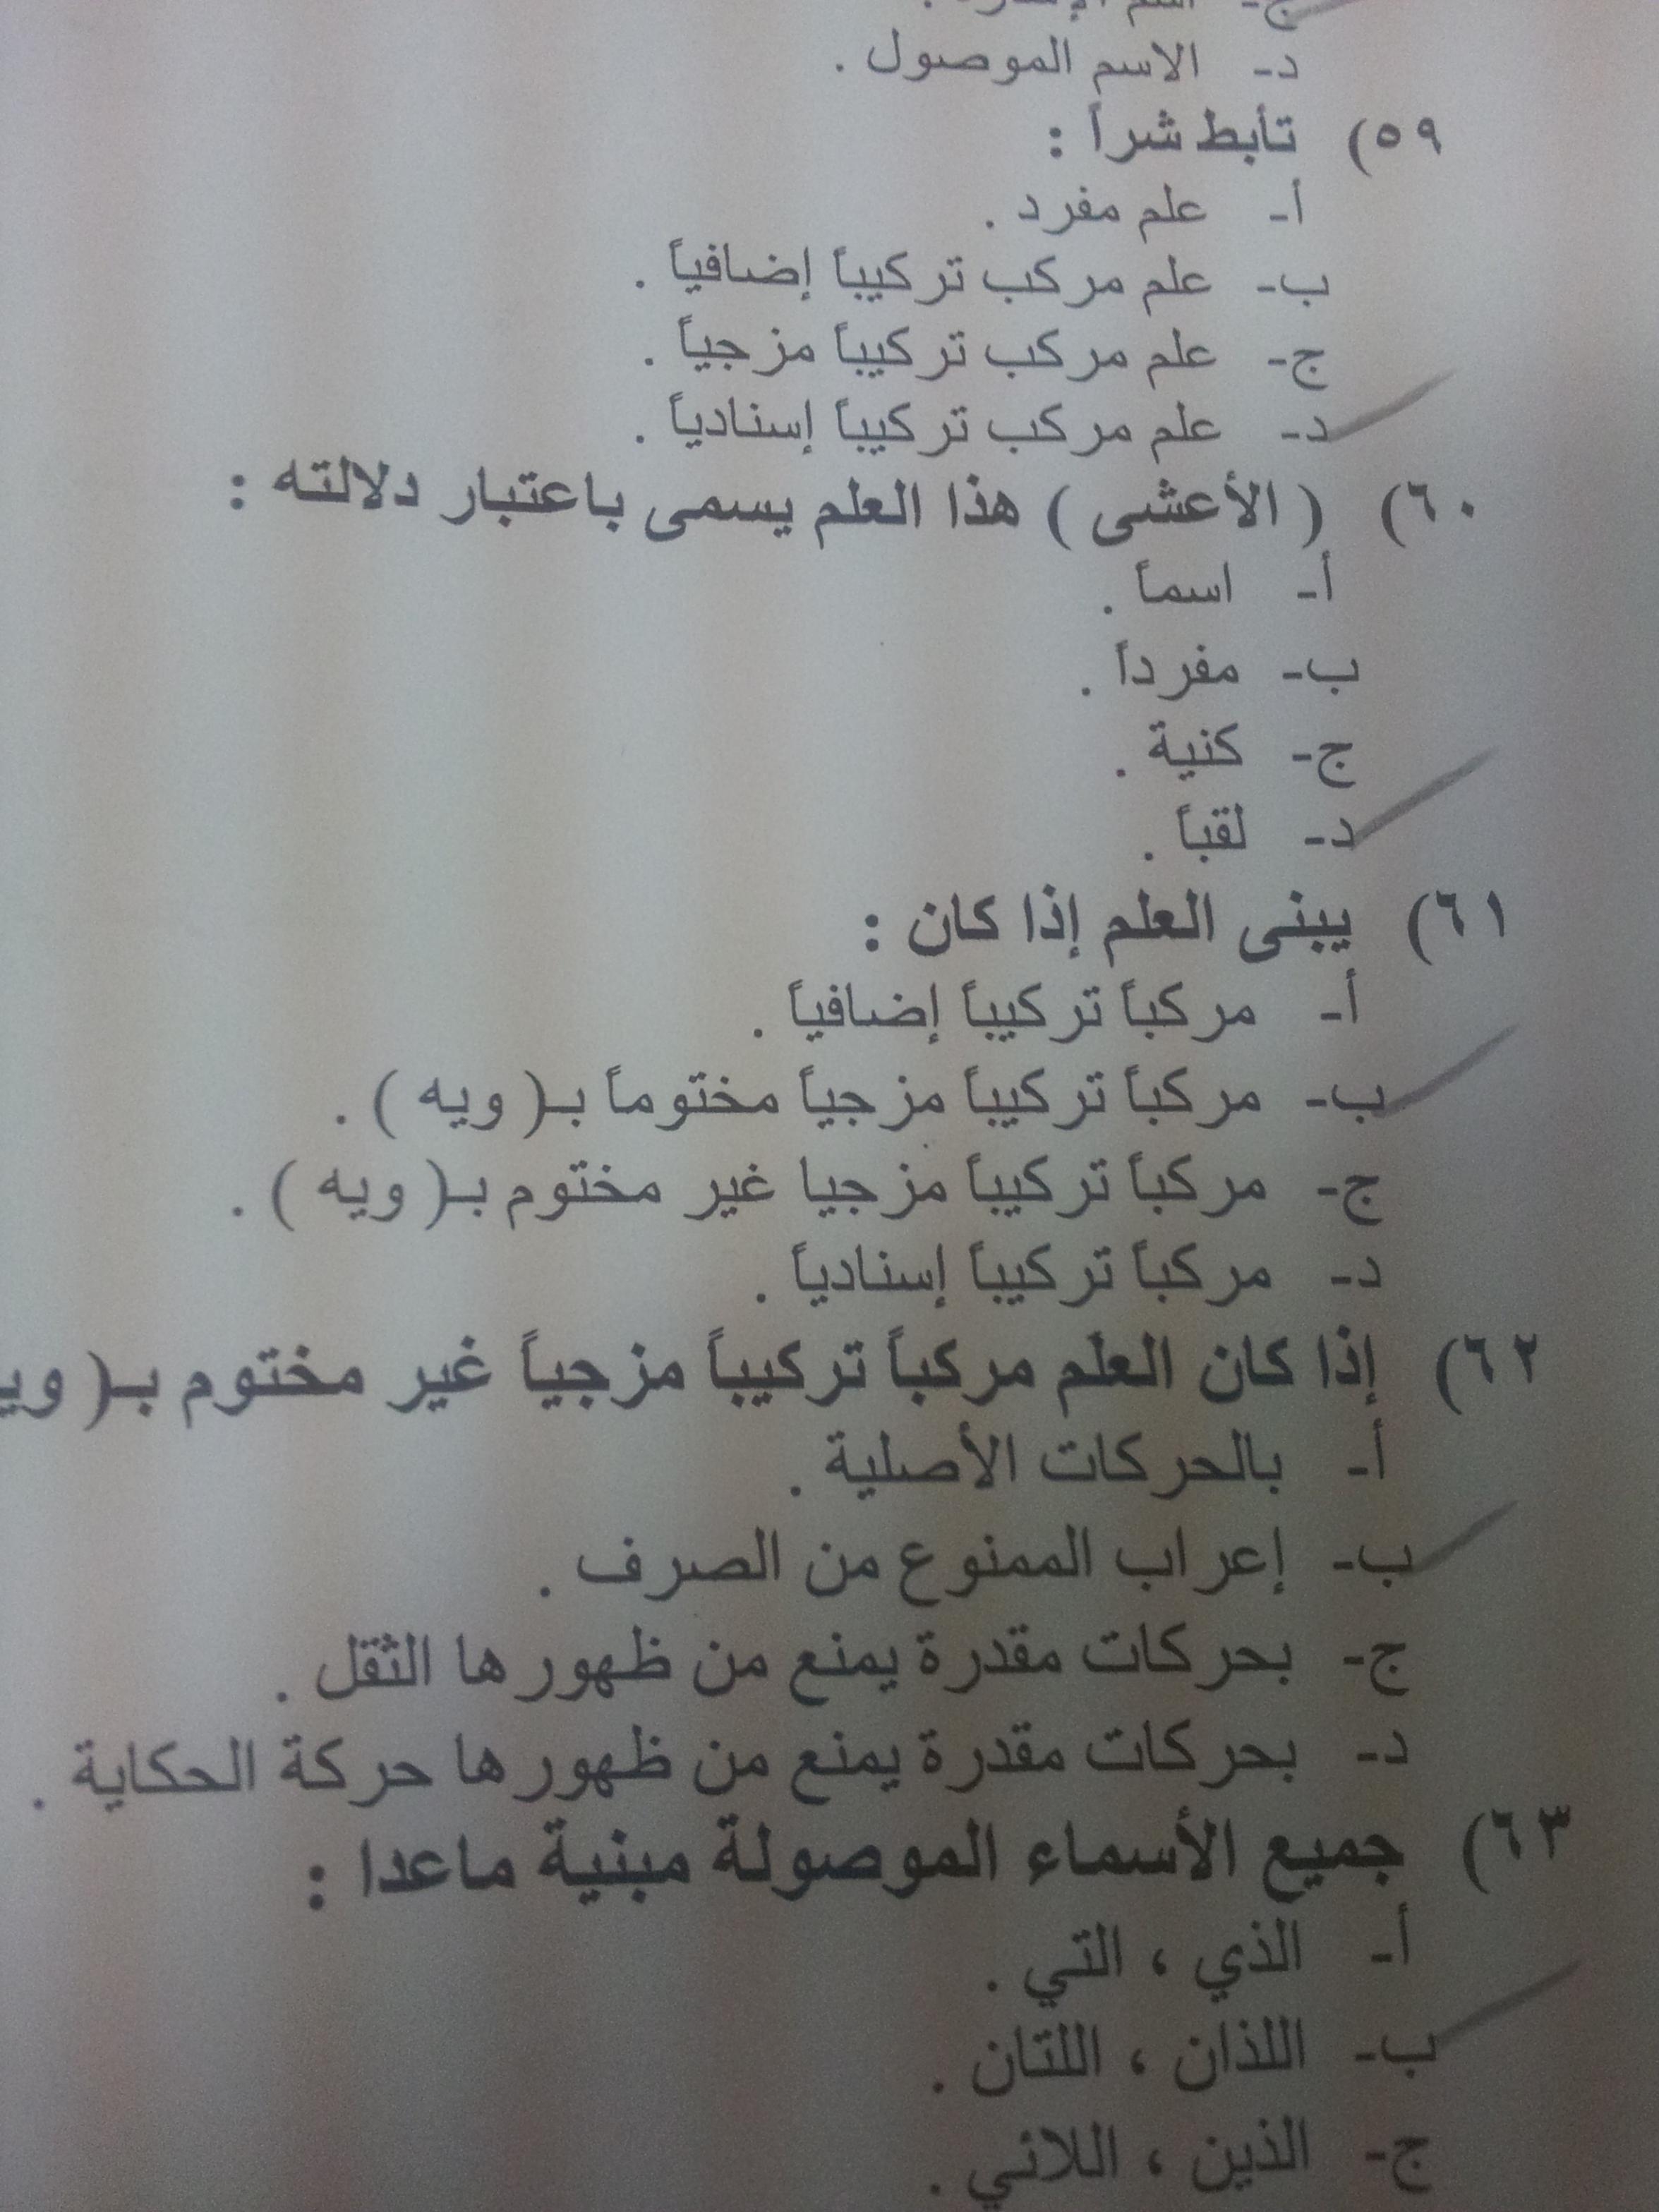 د- الاسم الموصول .
٥٩) تأبط شراً :
أ- علم مفرد .
ب- علم مركب تركيباً إضافياً .
ج- علم مركب تركيباً مزجياً .
د- علم مركب تركيباً إسنادياً .
٦٠) ( الأعشى ) هذا العلم يسمى باعتبار دلالته :
أ- اسماً .
ب- مفرداً .
ج- كنية .
د- لقباً .
٦١) يبنى العلم إذا كان :
أ- مركباً تركيباً إضافياً .
ب- مركباً تركيباً مزجياً مختوماً بـ( ويه ) .
ج- مركباً تركيباً مزجيا غير مختوم بـ( ويه ) .
د- مركباً تركيباً إسنادياً .
٦٢) إذا كان العلم مركباً تركيباً مزجياً غير مختوم بـ(
أ- بالحركات الأصلية .
ب- إعراب الممنوع من الصرف .
ج- بحركات مقدرة يمنع من ظهورها الثقل .
د- بحركات مقدرة يمنع من ظهورها حركة الحكاية .
٦٣) جميع الأسماء الموصولة مبنية ماعدا :
أ- الذي ، التي .
ب- اللذان ، اللتان .
ج- الذين ، اللائي .